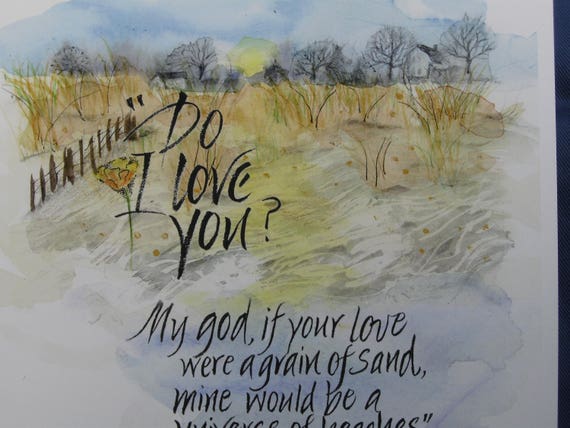 "Do
I love
you?
My god, if your love
were a grain of sand,
mine would be a
universe of beaches"